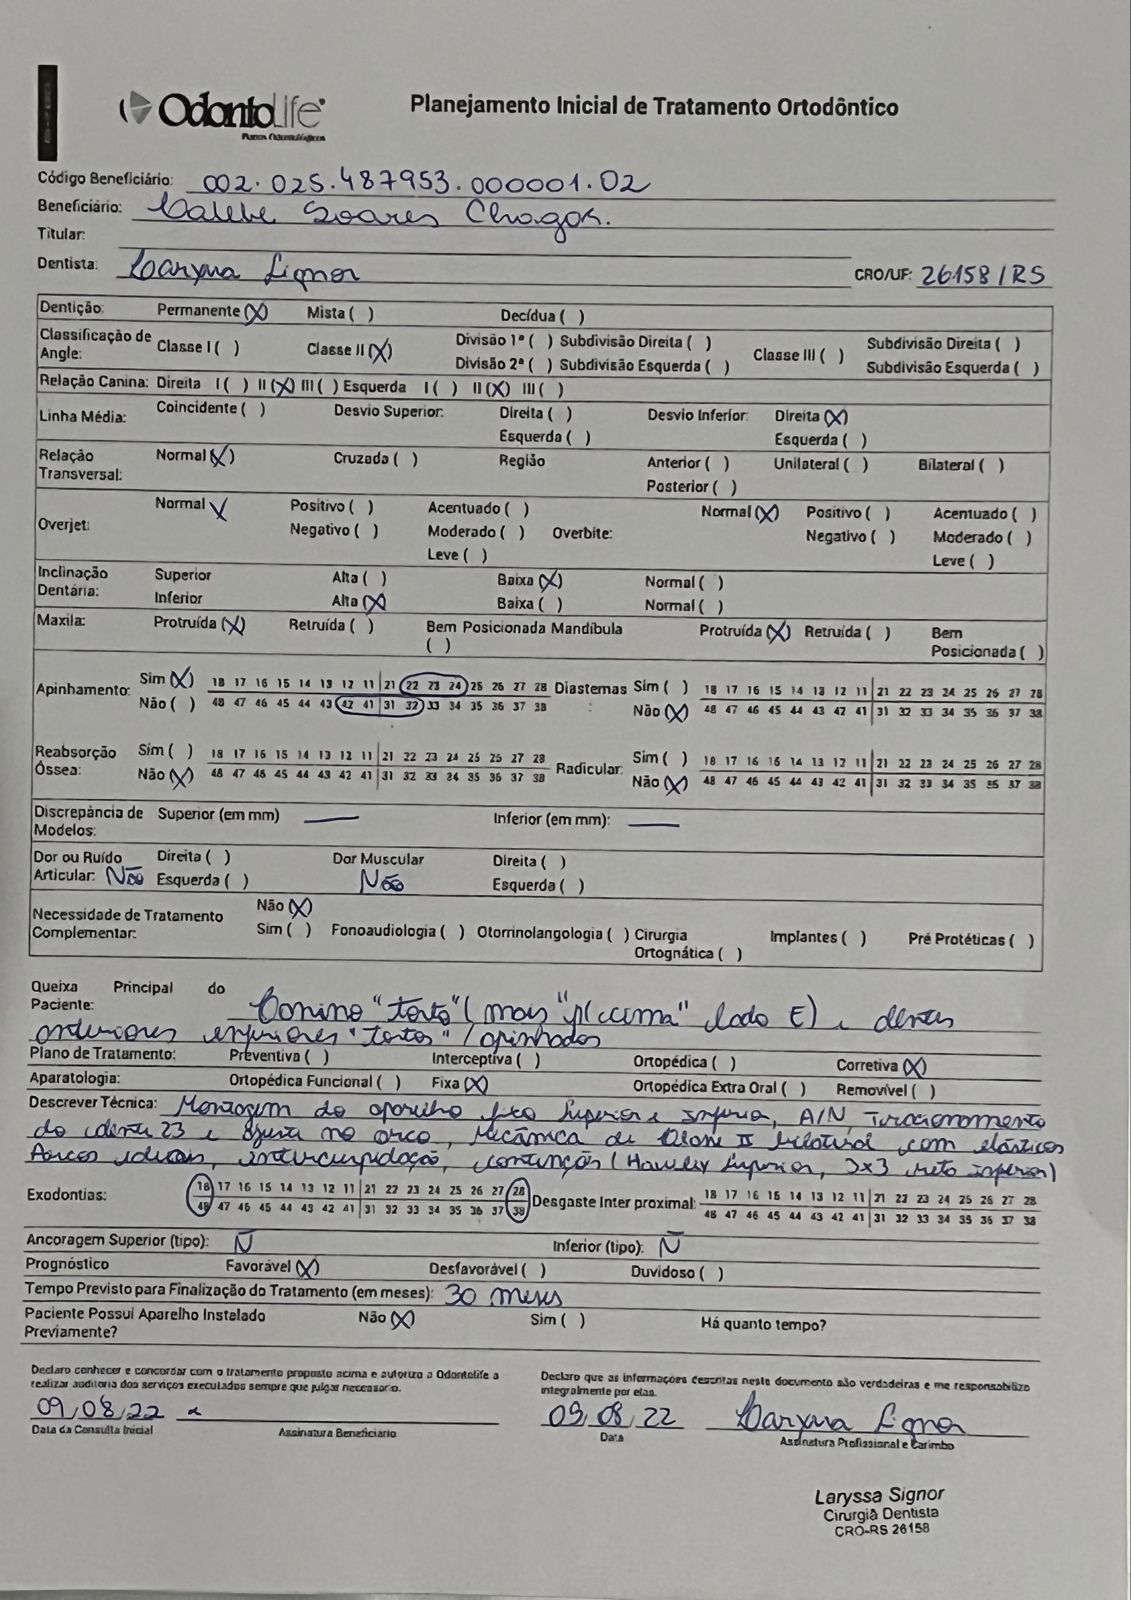 OdontoLife
Planos Odontológicos
Planejamento Inicial de Tratamento Ortodôntico
Código Beneficiário: 002.025.487953.000001.02
Beneficiário: Calebe Soares Chagas.
Titular:
Dentista: Laryssa Signor CRO/UF: 26158/RS
Dentição: Permanente (X) Mista ( ) Decídua ( )
Classificação de Angle: Classe I ( ) Classe II (X) Divisão 1ª ( ) Subdivisão Direita ( ) Divisão 2ª ( ) Subdivisão Esquerda ( ) Classe III ( ) Subdivisão Direita ( ) Subdivisão Esquerda ( )
Relação Canina: Direita I ( ) II (X) III ( ) Esquerda I ( ) II (X) III ( )
Linha Média: Coincidente ( ) Desvio Superior: Direita ( ) Esquerda ( ) Desvio Inferior: Direita (X) Esquerda ( )
Relação Transversal: Normal (X) Cruzada ( ) Região Anterior ( ) Posterior ( ) Unilateral ( ) Bilateral ( )
Overjet: Normal X Positivo ( ) Negativo ( ) Acentuado ( ) Moderado ( ) Leve ( ) Overbite: Normal (X) Positivo ( ) Negativo ( ) Acentuado ( ) Moderado ( ) Leve ( )
Inclinação Dentária: Superior Alta ( ) Baixa (X) Normal ( )
Inferior Alta (X) Baixa ( ) Normal ( )
Maxila: Protruída (X) Retruída ( ) Bem Posicionada ( ) Mandíbula Protruída (X) Retruída ( ) Bem Posicionada ( )
Apinhamento: Sim (X) 18 17 16 15 14 13 12 11 21 22 23 24 25 26 27 28 Diastemas : Sim ( ) 18 17 16 15 14 13 12 11 21 22 23 24 25 26 27 28
Não ( ) 48 47 46 45 44 43 42 41 31 32 33 34 35 36 37 38 Não (X) 48 47 46 45 44 43 42 41 31 32 33 34 35 36 37 38
Reabsorção Óssea: Sim ( ) 18 17 16 15 14 13 12 11 21 22 23 24 25 26 27 28 Radicular: Sim ( ) 18 17 16 15 14 13 12 11 21 22 23 24 25 26 27 28
Não (X) 48 47 46 45 44 43 42 41 31 32 33 34 35 36 37 38 Não (X) 48 47 46 45 44 43 42 41 31 32 33 34 35 36 37 38
Discrepância de Modelos: Superior (em mm) — Inferior (em mm): —
Dor ou Ruído Articular: Não Direita ( ) Esquerda ( ) Dor Muscular Não Direita ( ) Esquerda ( )
Necessidade de Tratamento Complementar: Não (X)
Sim ( ) Fonoaudiologia ( ) Otorrinolangologia ( ) Cirurgia Ortognática ( ) Implantes ( ) Pré Protéticas ( )
Queixa Principal do
Paciente: Canino "torto" (mais "p/ cima" lado E) e dentes
anteriores inferiores "tortos" / apinhados
Plano de Tratamento: Preventiva ( ) Interceptiva ( ) Ortopédica ( ) Corretiva (X)
Aparatologia: Ortopédica Funcional ( ) Fixa (X) Ortopédica Extra Oral ( ) Removível ( )
Descrever Técnica: Montagem do aparelho fixo superior e inferior, A/N, Tracionamento
do dente 23 e ajuste no arco, Mecânica de Classe II bilateral com elásticos
Arcos ideais, intercuspidação, contenção (Hawley superior, 3x3 reto inferior)
Exodontias: 18 17 16 15 14 13 12 11 21 22 23 24 25 26 27 28 Desgaste Inter proximal: 18 17 16 15 14 13 12 11 21 22 23 24 25 26 27 28
48 47 46 45 44 43 42 41 31 32 33 34 35 36 37 38 48 47 46 45 44 43 42 41 31 32 33 34 35 36 37 38
Ancoragem Superior (tipo): Ñ Inferior (tipo): Ñ
Prognóstico Favorável (X) Desfavorável ( ) Duvidoso ( )
Tempo Previsto para Finalização do Tratamento (em meses): 30 meses
Paciente Possui Aparelho Instalado Previamente? Não (X) Sim ( ) Há quanto tempo?
Declaro conhecer e concordar com o tratamento proposto acima e autorizo a Odontolife a
realizar auditoria dos serviços executados sempre que julgar necessário.
09/08/22
Data da Consulta Inicial Assinatura Beneficiário
Declaro que as informações descritas neste documento são verdadeiras e me responsabilizo
integralmente por elas.
09/08/22 Laryssa Signor
Data Assinatura Profissional e Carimbo
Laryssa Signor
Cirurgiã Dentista
CRO-RS 26158